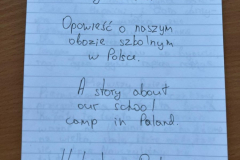 Opowieść o naszym
obozie szkolnym
w Polsce.
A story about
our school
camp in Poland